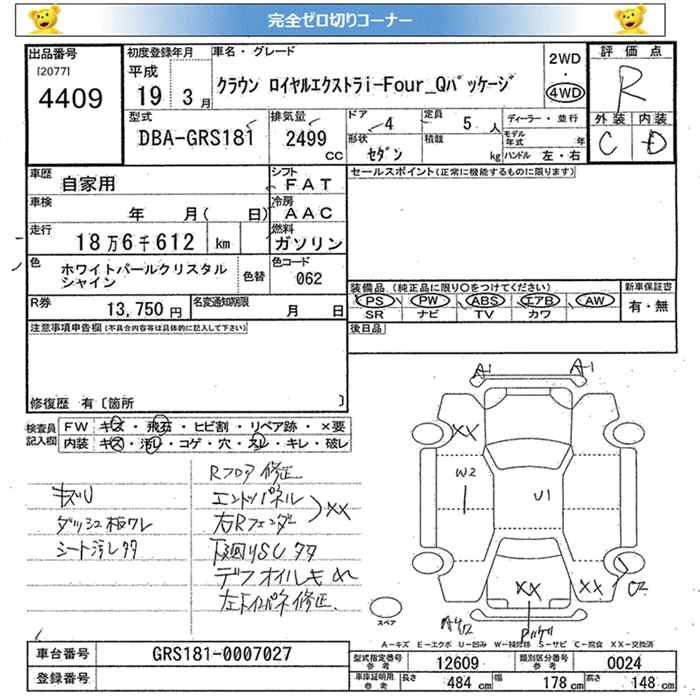 完全ゼロ切りコーナー
出品番号 初度登録年月 車名・グレード 2WD 評価点
[2077] 平成
4409 19 3月 クラウン ロイヤルエクストラi-Four_Qパッケージ ・ 4WD R
型式 排気量 ドア 定員 ディーラー・並行 外装 内装
DBA-GRS181 2499 CC 4 5 人 モデル年式 年 C D
形状 セダン 積載 kg ハンドル 左・右
車歴 自家用 シフト FAT セールスポイント(正常に機能するものに限ります)
車検 年 月( 日) 冷房 AAC
走行 18万6千612 km 燃料 ガソリン
色 ホワイトパールクリスタル 色替 色コード 062
シャイン
装備品 (純正品に限り○をつけてください) 新車保証書
R券 13,750円 名変通知期限 月 日 PS PW ABS エアB AW 有・無
SR ナビ TV カワ
注意事項申告欄(不具合内容等は具体的に記入して下さい) 後日品
修復歴 有〔箇所 〕
検査員記入欄 FW キズ・飛石・ヒビ割・リペア跡・×要
内装 キズ・汚れ・コゲ・穴・スレ・キレ・破レ
A-1 A-1
XX
W2 U1
Rフロア修正
キズU エンドパネル
ダッシュ板ワレ 右Rフェンダー XX
シート汚レタタ 下廻りSCタタ
デフオイルもれ
XX XX
スペア
A-キズ E-エクボ U-凹み W-補修跡 S-サビ C-腐食 XX-交換済
車台番号 GRS181-0007027 型式指定番号 参考 12609 類別区分番号 参考 0024
登録番号 車庫証明用 参考 長さ 484 cm 幅 178 cm 高さ 148 cm